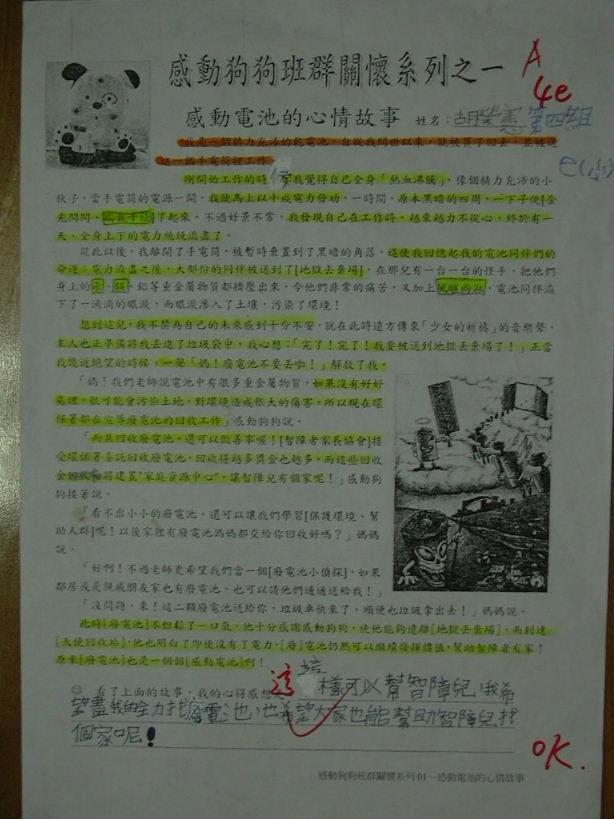 感動狗狗班群關懷系列之一
A
4e
感動電池的心情故事 姓名：胡 第四組
我是一個精力充沛的乾電池，自從我問世以來，就被買了回去，並被
一個手電筒裡工作
剛開始工作的時候，我覺得自己全身「熱血沸騰」，像個精力充沛的小
伙子，當手電筒的電源一開，我便馬上以十成電力發功，一時間，原本黑暗的四周，一下子便
光閃閃、 了起來，不過好景不常，我發現自己在工作時，越來越力不從心，終於有一
天，全身上下的電力統統流盡了。
從此以後，我離開了手電筒，被暫時棄置到了黑暗的角落，這使我回憶起我的電池同伴們的
命運：電力流盡之後，大部份的同伴被送到了[地獄去棄場]，在那兒有一台一台的怪手，把他們
身上的 、鉛等重金屬物質都擠壓出來，令他們非常的痛苦，又加上 ，電池同伴流
下了一滴滴的眼淚，而眼淚滲入了土壤，污染了環境！
想到這兒，我不禁為自己的未來感到十分不安，就在此時遠方傳來「少女的祈禱」的音樂聲，
主人也正準備將我丟進了垃圾袋中，我心想：「完了！完了！我要被送到地獄去棄場了！」正當
我幾近絕望的時候，一聲「媽！廢電池不要丟啦！」解救了我。
「媽！我們老師說電池中有很多重金屬物質，如果沒有好好
處理，很可能會污染土地，對環境造成很大的傷害，所以現在環
保署都在宣導廢電池的回收工作」感動狗狗說。
「而且回收廢電池，還可以做善事喔！[智障者家長協會]接
受環保署委託回收廢電池，回收得越多獎金也越多，而這些回收
金 將建置"家庭資源中心"，讓智障兒有個家呢！」感動狗
狗接著說。
「看不出小小的廢電池，還可以讓我們學習[保護環境、幫
助人群]呢！以後家裡有廢電池媽媽都交給你回收好嗎？」媽媽
說。
「好啊！不過老師更希望我們當一個[廢電池小偵探]，如果
鄰居或是親戚朋友家也有廢電池，也可以請他們通通送給我！」
「沒問題，來！這二顆廢電池送給你，垃圾車快來了，順便也垃圾拿出去！」媽媽說。
此時[廢電池]不但鬆了一口氣，他十分感謝感動狗狗，使他能夠遠離[地獄去棄場]，而到達
[天使回收站]，他也明白了即使沒有了電力，[廢]電池仍然可以繼續發揮價值，幫助智障者有家！
原來[廢電池]也是一個個[感動電池]啊！
☺ 看了上面的故事，我的心得感想： 這樣可以幫智障兒，我希
望盡我的全力找廢電池，也希望大家也能幫助智障兒找
個家呢！
OK.
感動狗狗班群關懷系列01—感動電池的心情故事